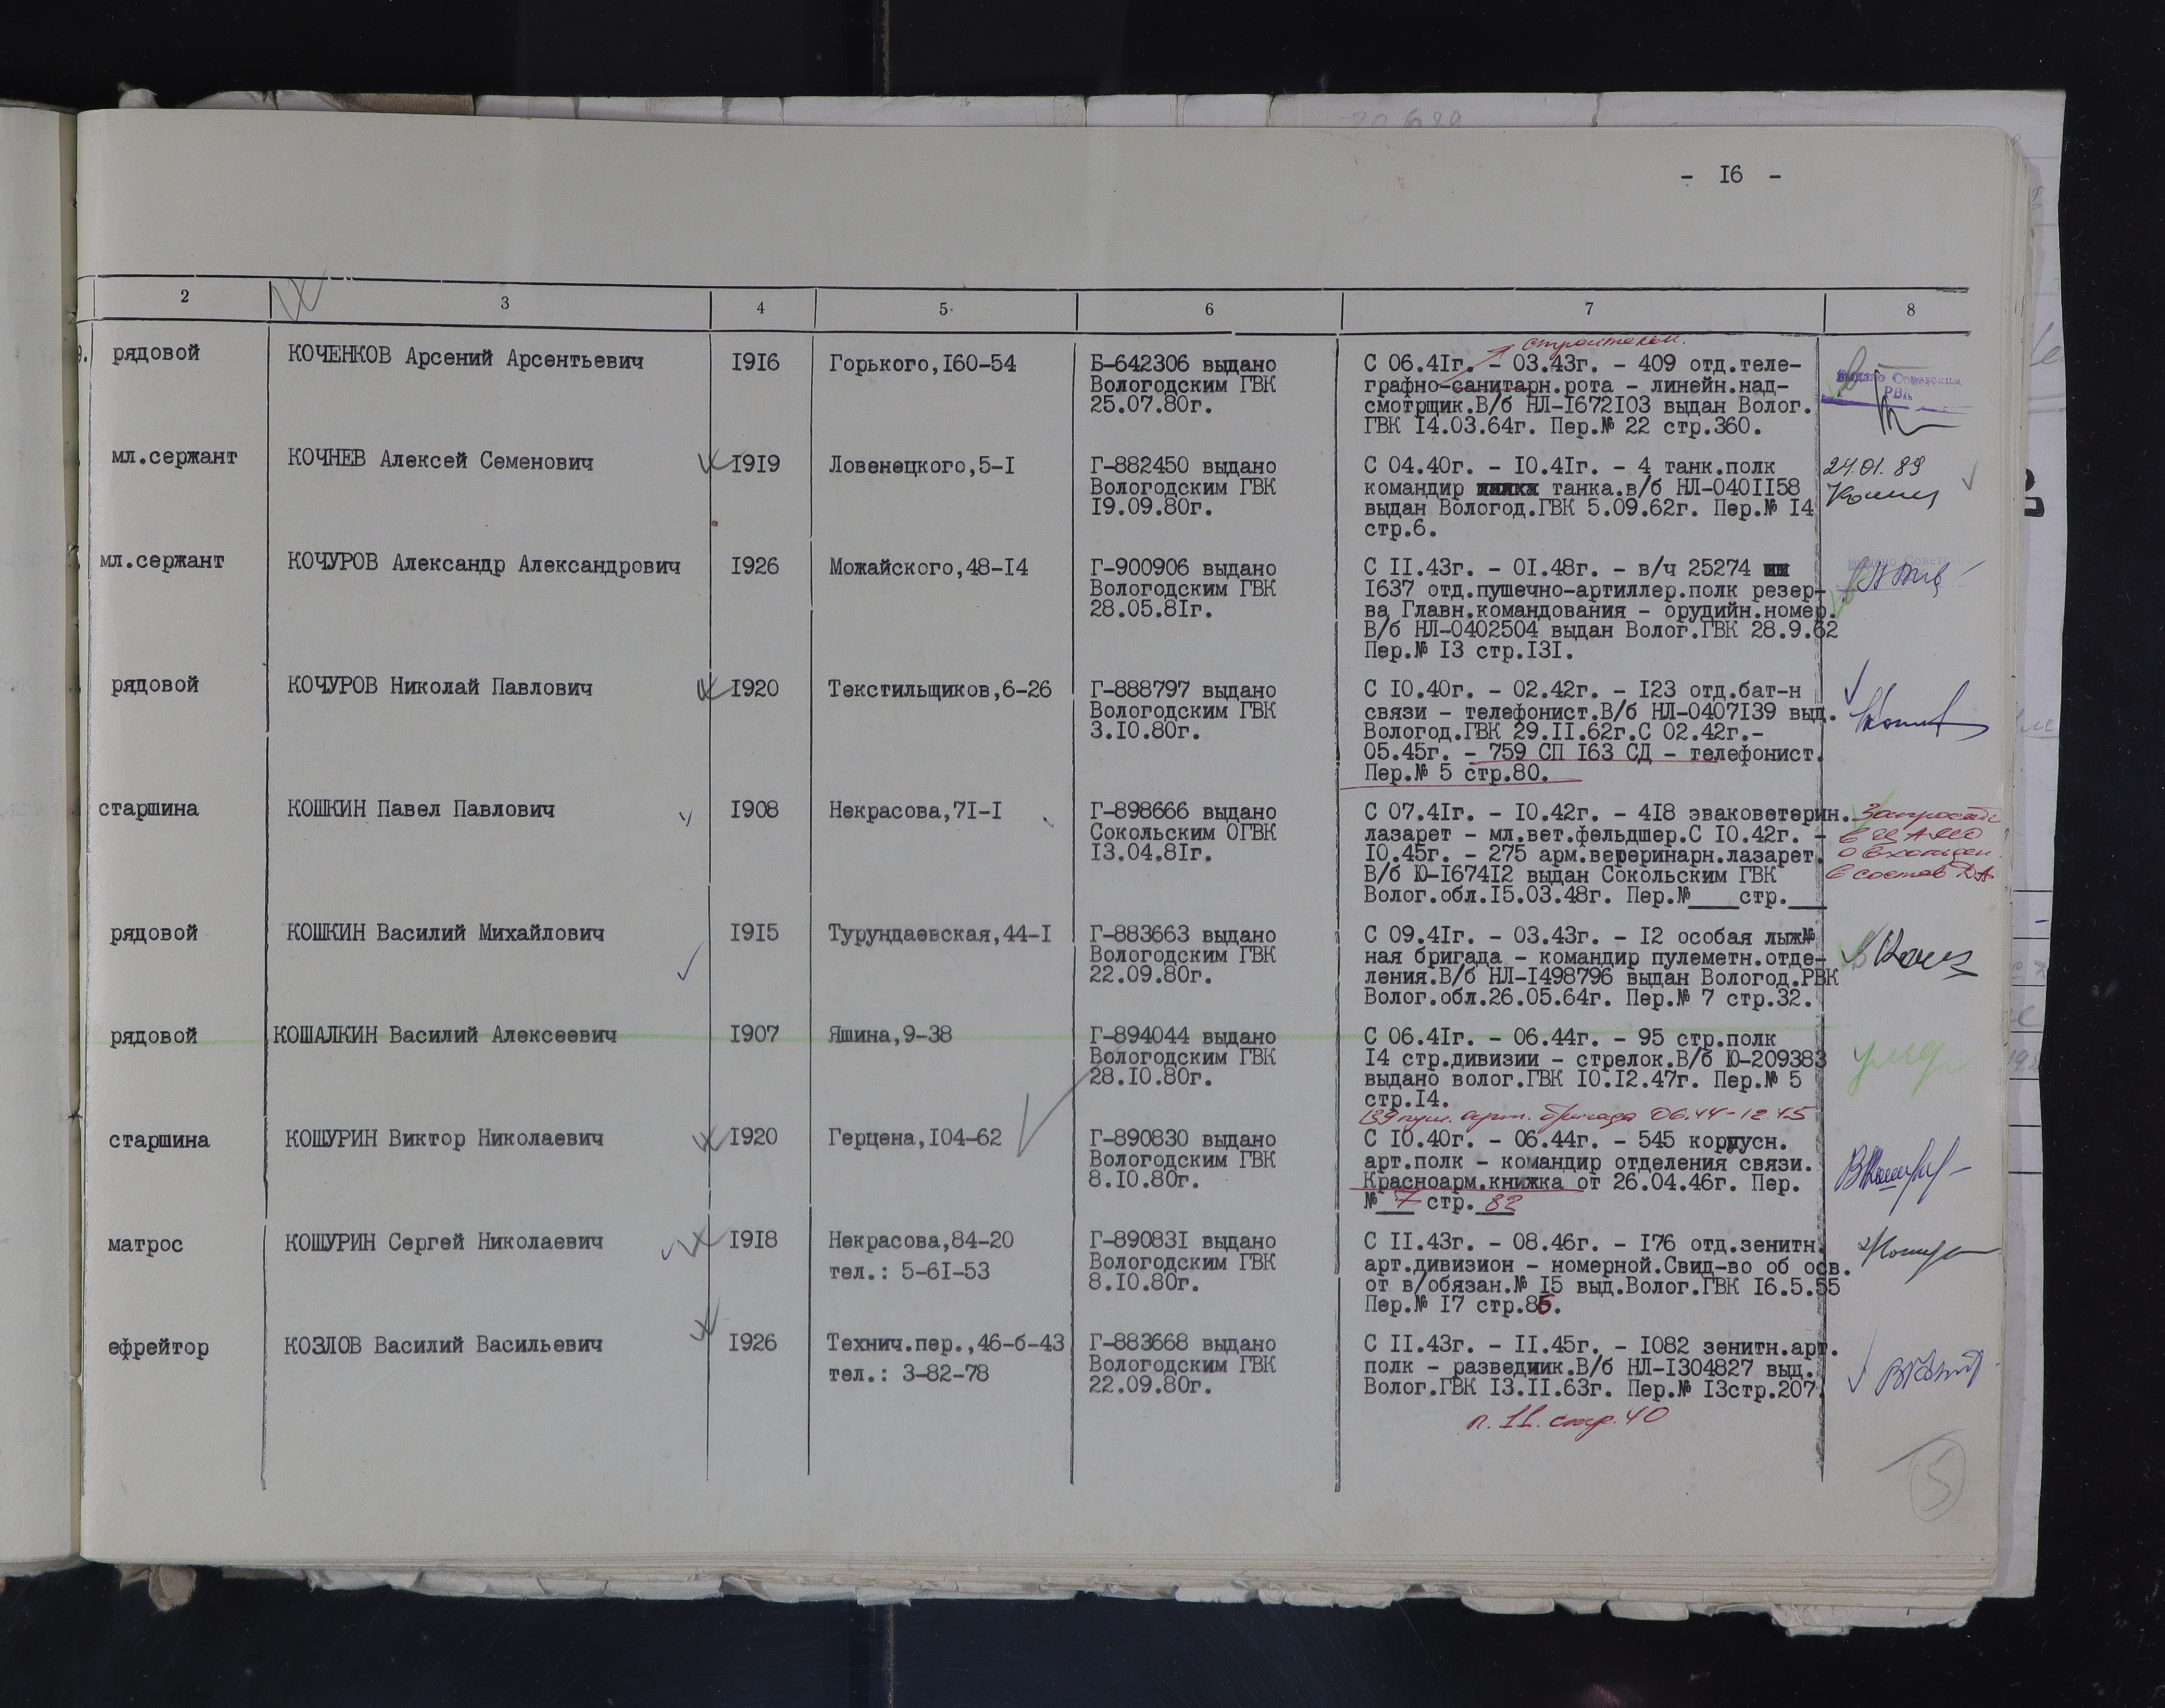 - I6 -
2 3 4 5 6 7 8
рядовой КОЧЕНКОВ Арсений Арсентьевич I9I6 Горького,I60-54 Б-642306 выдано С 06.4Iг. - 03.43г. - 409 отд.теле-
Вологодским ГВК графно-санитарн.рота - линейн.над-
25.07.80г. смотрщик.В/б НЛ-I672I03 выдан Волог.
ГВК I4.03.64г. Пер.№ 22 стр.360.
Советским
РВК
мл.сержант КОЧНЕВ Алексей Семенович I9I9 Ловенецкого,5-I Г-882450 выдано С 04.40г. - I0.4Iг. - 4 танк.полк 24.01.89
Вологодским ГВК командир танка.в/б НЛ-040II58
I9.09.80г. выдан Вологод.ГВК 5.09.62г. Пер.№ I4
стр.6.
мл.сержант КОЧУРОВ Александр Александрович I926 Можайского,48-I4 Г-900906 выдано С II.43г. - 0I.48г. - в/ч 25274
Вологодским ГВК I637 отд.пушечно-артиллер.полк резер-
28.05.8Iг. ва Главн.командования - орудийн.номер.
В/б НЛ-0402504 выдан Волог.ГВК 28.9.62
Пер.№ I3 стр.I3I.
рядовой КОЧУРОВ Николай Павлович I920 Текстильщиков,6-26 Г-888797 выдано С I0.40г. - 02.42г. - I23 отд.бат-н
Вологодским ГВК связи - телефонист.В/б НЛ-0407I39 выд.
3.I0.80г. Вологод.ГВК 29.II.62г.С 02.42г.-
05.45г. - 759 СП I63 СД - телефонист.
Пер.№ 5 стр.80.
старшина КОШКИН Павел Павлович I908 Некрасова,7I-I Г-898666 выдано С 07.4Iг. - I0.42г. - 4I8 эваковетерин.
Сокольским ОГВК лазарет - мл.вет.фельдшер.С I0.42г. -
I3.04.8Iг. I0.45г. - 275 арм.веререинарн.лазарет.
В/б Ю-I674I2 выдан Сокольским ГВК
Волог.обл.I5.03.48г. Пер.№___стр.___
в ЦАМО
в состав ДА
рядовой КОШКИН Василий Михайлович I9I5 Турундаевская,44-I Г-883663 выдано С 09.4Iг. - 03.43г. - I2 особая лыж№
Вологодским ГВК ная бригада - командир пулеметн.отде-
22.09.80г. ления.В/б НЛ-I498796 выдан Вологод.РВК
Волог.обл.26.05.64г. Пер.№ 7 стр.32.
рядовой КОШАЛКИН Василий Алексеевич I907 Яшина,9-38 Г-894044 выдано С 06.4Iг. - 06.44г. - 95 стр.полк
Вологодским ГВК I4 стр.дивизии - стрелок.В/б Ю-209383
28.I0.80г. выдано волог.ГВК I0.I2.47г. Пер.№ 5
стр.I4.
умер
139 пуш. арт. бригада 06.44-12.45
старшина КОШУРИН Виктор Николаевич I920 Герцена,I04-62 Г-890830 выдано С I0.40г. - 06.44г. - 545 корпусн.
Вологодским ГВК арт.полк - командир отделения связи.
8.I0.80г. Красноарм.книжка от 26.04.46г. Пер.
№ 7 стр. 82
матрос КОШУРИН Сергей Николаевич I9I8 Некрасова,84-20 Г-89083I выдано С II.43г. - 08.46г. - I76 отд.зенитн.
тел.: 5-6I-53 Вологодским ГВК арт.дивизион - номерной.Свид-во об осв.
8.I0.80г. от в/обязан.№ I5 выд.Волог.ГВК I6.5.55
Пер.№ I7 стр.85.
ефрейтор КОЗЛОВ Василий Васильевич I926 Технич.пер.,46-б-43 Г-883668 выдано С II.43г. - II.45г. - I082 зенитн.арт.
тел.: 3-82-78 Вологодским ГВК полк - разведчик.В/б НЛ-I304827 выд.
22.09.80г. Волог.ГВК I3.II.63г. Пер.№ I3стр.207.
п. 11. стр. 40
5